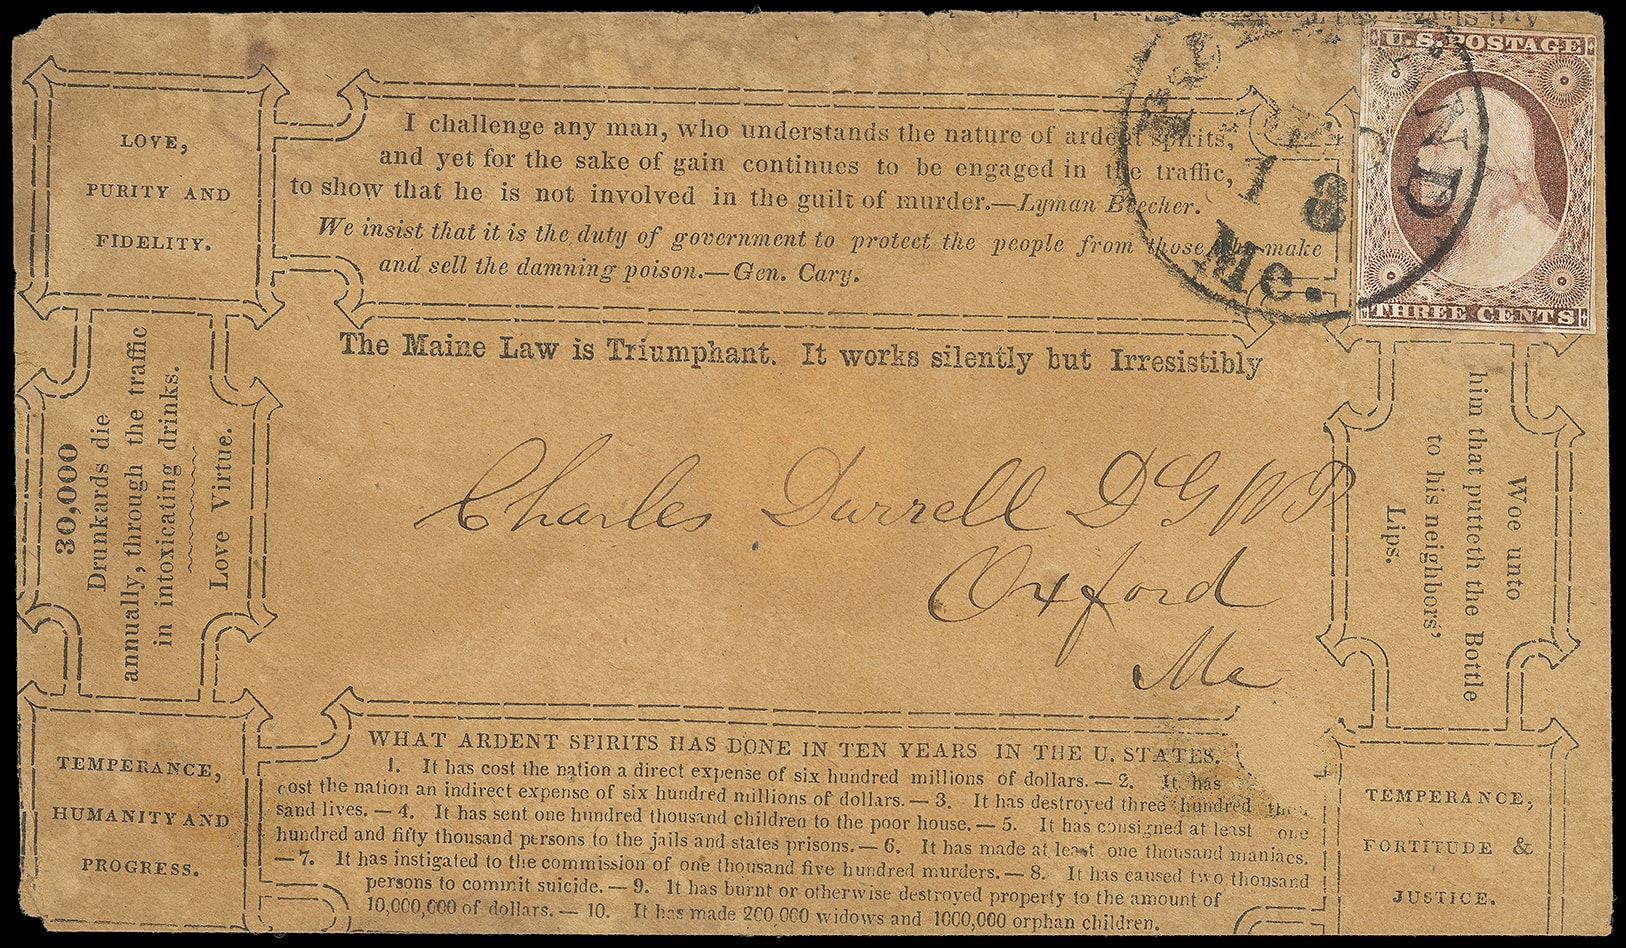 LOVE,
PURITY AND
FIDELITY.
I challenge any man, who understands the nature of ardent spirits,
and yet for the sake of gain continues to be engaged in the traffic,
to show that he is not involved in the guilt of murder.—Lyman Beecher.
We insist that it is the duty of government to protect the people from those who make
and sell the damning poison.—Gen. Cary.
ND
18
Me.
U.S. POSTAGE
THREE CENTS
The Maine Law is Triumphant. It works silently but Irresistibly
30,000
Drunkards die
annually, through the traffic
in intoxicating drinks.
Love Virtue.
Charles Durrell D G W P
Oxford
Me
Woe unto
him that putteth the Bottle
to his neighbors'
Lips.
TEMPERANCE,
HUMANITY AND
PROGRESS.
WHAT ARDENT SPIRITS HAS DONE IN TEN YEARS IN THE U. STATES.
1. It has cost the nation a direct expense of six hundred millions of dollars. — 2. It has
cost the nation an indirect expense of six hundred millions of dollars. — 3. It has destroyed three hundred thou
sand lives. — 4. It has sent one hundred thousand children to the poor house. — 5. It has consigned at least one
hundred and fifty thousand persons to the jails and states prisons. — 6. It has made at least one thousand maniacs.
— 7. It has instigated to the commission of one thousand five hundred murders. — 8. It has caused two thousand
persons to commit suicide. — 9. It has burnt or otherwise destroyed property to the amount of
10,000,000 of dollars. — 10. It has made 200 000 widows and 1000,000 orphan children.
TEMPERANCE,
FORTITUDE &
JUSTICE.